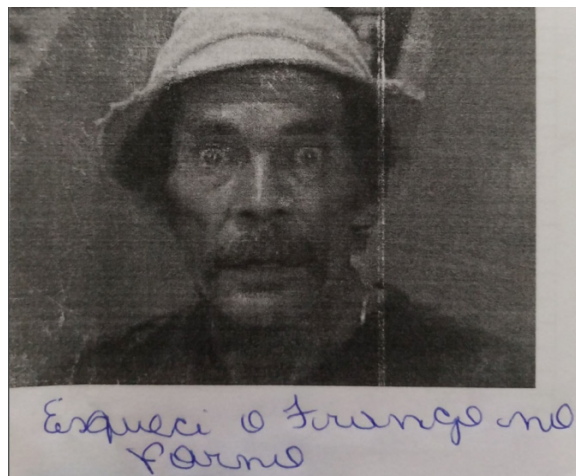 Esqueci o Frango no
forno